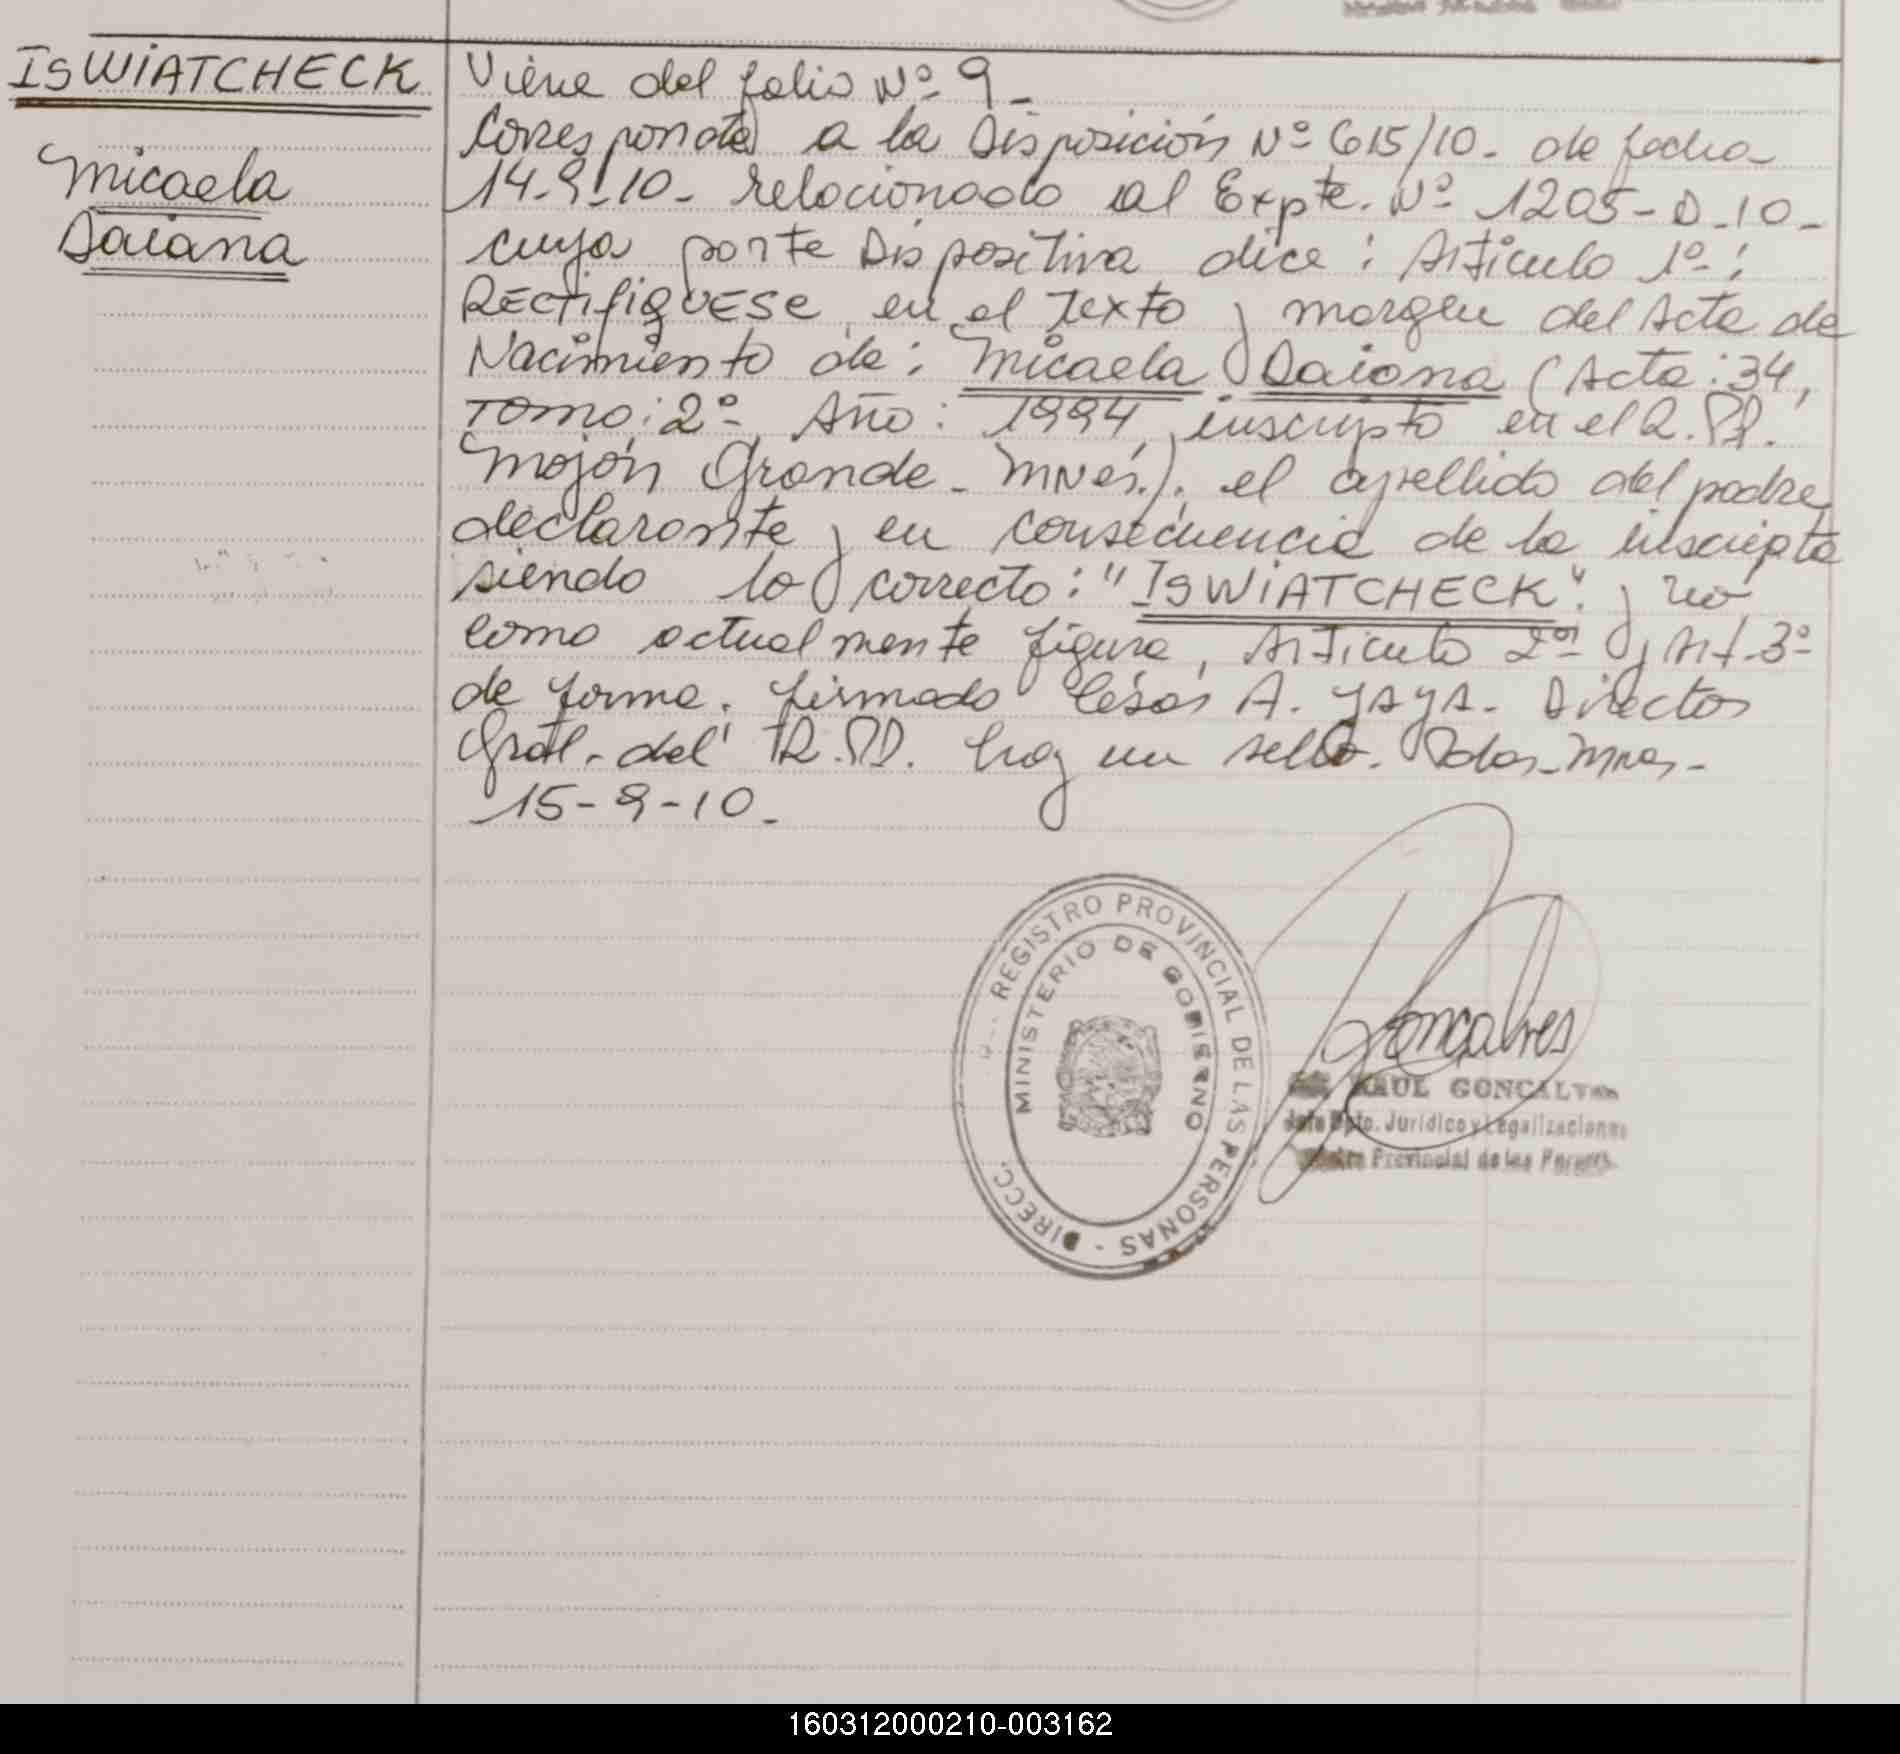 ISWIATCHECK
Micaela
Daiana
Viene del folio Nº 9-
Corresponde a la Disposición Nº 615/10- de fecha
14-9-10- relacionado al Expte. Nº 1205-D-10-
cuya parte Dispositiva dice: Artículo 1º-:
RECTIFIQUESE, en el Texto y margen del Acta de
Nacimiento de: Micaela Daiana (Acta: 34,
TOMO: 2º- Año: 1994, inscripto en el R.PP.
Mojón Grande- MNes.). el apellido del padre
declarante y en consecuencia de la inscripta
siendo lo correcto: "ISWIATCHECK". y no
como actualmente figura, Artículo 2º y Art. 3º
de forma. firmado César A. YAYA. Director
Gral. del R.PP. hay un sello. Pdas-Mnes-
15-9-10-
REGISTRO PROVINCIAL DE LAS PERSONAS - DIRECC.
MINISTERIO DE GOBIERNO
Goncalves
RAUL GONCALVES
Jefe Dpto. Jurídico y Legalizaciones
Provincial de las Person.
160312000210-003162